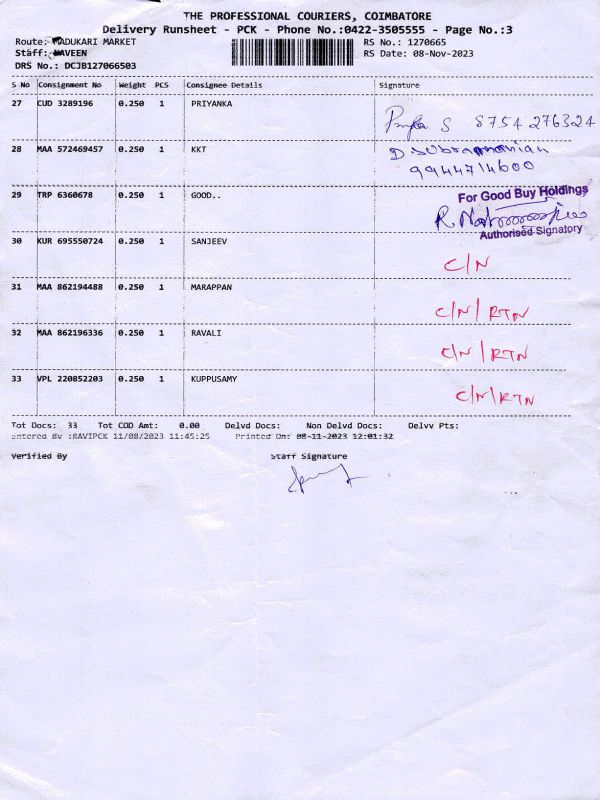 THE PROFESSIONAL COURIERS, COIMBATORE
Delivery Runsheet - PCK - Phone No.:0422-3505555 - Page No.:3
Route: MADUKARI MARKET
RS No.: 1270665
Staff: NAVEEN
RS Date: 08-Nov-2023
DRS No.: DCJB127066503
S No Consignment No Weight PCS Consignee Details Signature
27 CUD 3289196 0.250 1 PRIYANKA
S 8754276324
28 MAA 572469457 0.250 1 KKT
D. Subramanian
9944714600
29 TRP 6360678 0.250 1 GOOD..
For Good Buy Holdings
R
Authorised Signatory
30 KUR 695550724 0.250 1 SANJEEV
C/N
31 MAA 862194488 0.250 1 MARAPPAN
C/N/RTN
32 MAA 862196336 0.250 1 RAVALI
C/N/RTN
33 VPL 220852203 0.250 1 KUPPUSAMY
C/N/RTN
Tot Docs: 33 Tot COD Amt: 0.00 Delvd Docs: Non Delvd Docs: Delvv Pts:
Entered By :RAVIPCK 11/08/2023 11:45:25 Printed On: 08-11-2023 12:01:32
Verified By Staff Signature